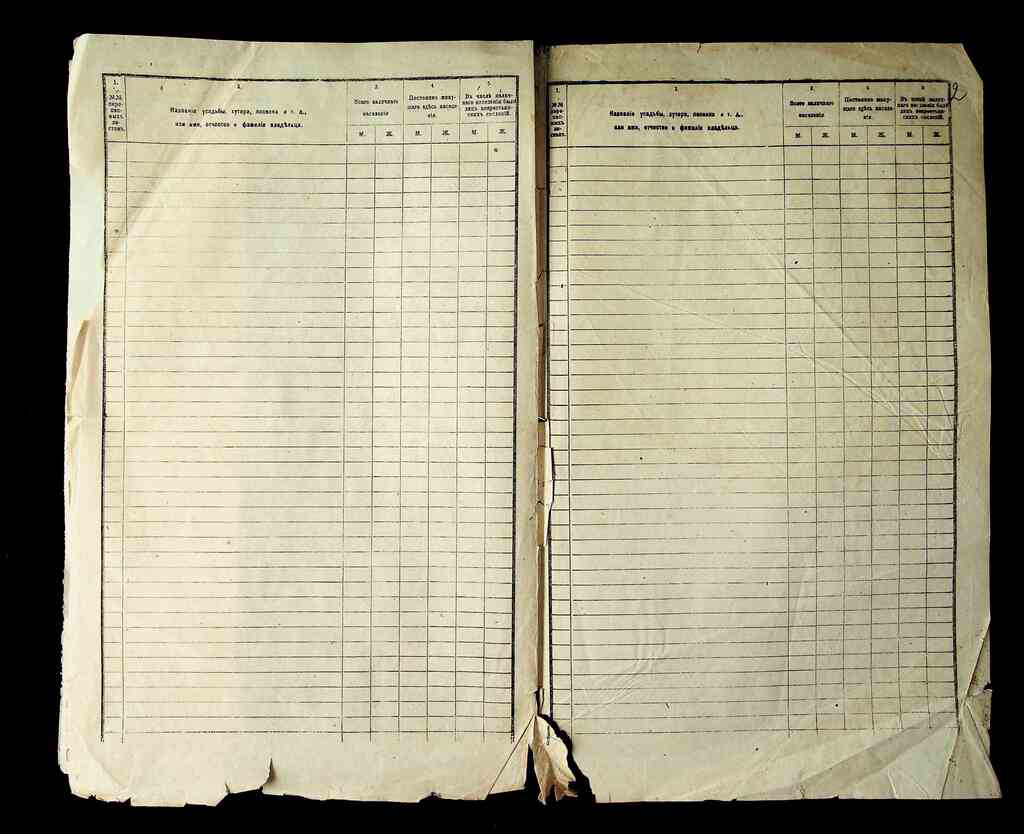 1.
№№ пере-
пис-
ныхъ
ли-
стовъ.
2.
Названіе усадьбы, хутора, поселка и т. д.,
или имя, отчество и фамилія владѣльца.
3.
Всего наличнаго
населенія
М. Ж.
4.
Постоянно живу-
щаго здѣсь населе-
нія.
М. Ж.
5.
Въ числѣ налич-
наго населенія было
лицъ некрестьян-
скихъ сословій.
М. Ж.
1.
№№
пере-
пис-
ныхъ
ли-
стовъ.
2.
Названіе усадьбы, хутора, поселка и т. д.,
или имя, отчество и фамилія владѣльца.
3.
Всего наличнаго
населенія
М. Ж.
4.
Постоянно живу-
щаго здѣсь населе-
нія.
М. Ж.
5.
Въ числѣ налич-
наго населенія было
лицъ некрестьян-
скихъ сословій.
М. Ж.
2